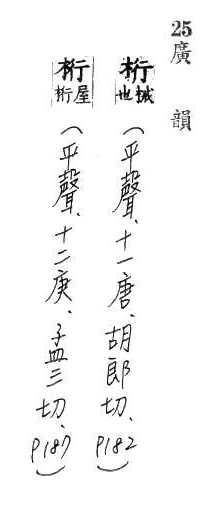 25廣韻
桁械也（平聲、十一唐、胡郎切、P182）
桁屋桁（平聲、十二庚、孟三切、P187）